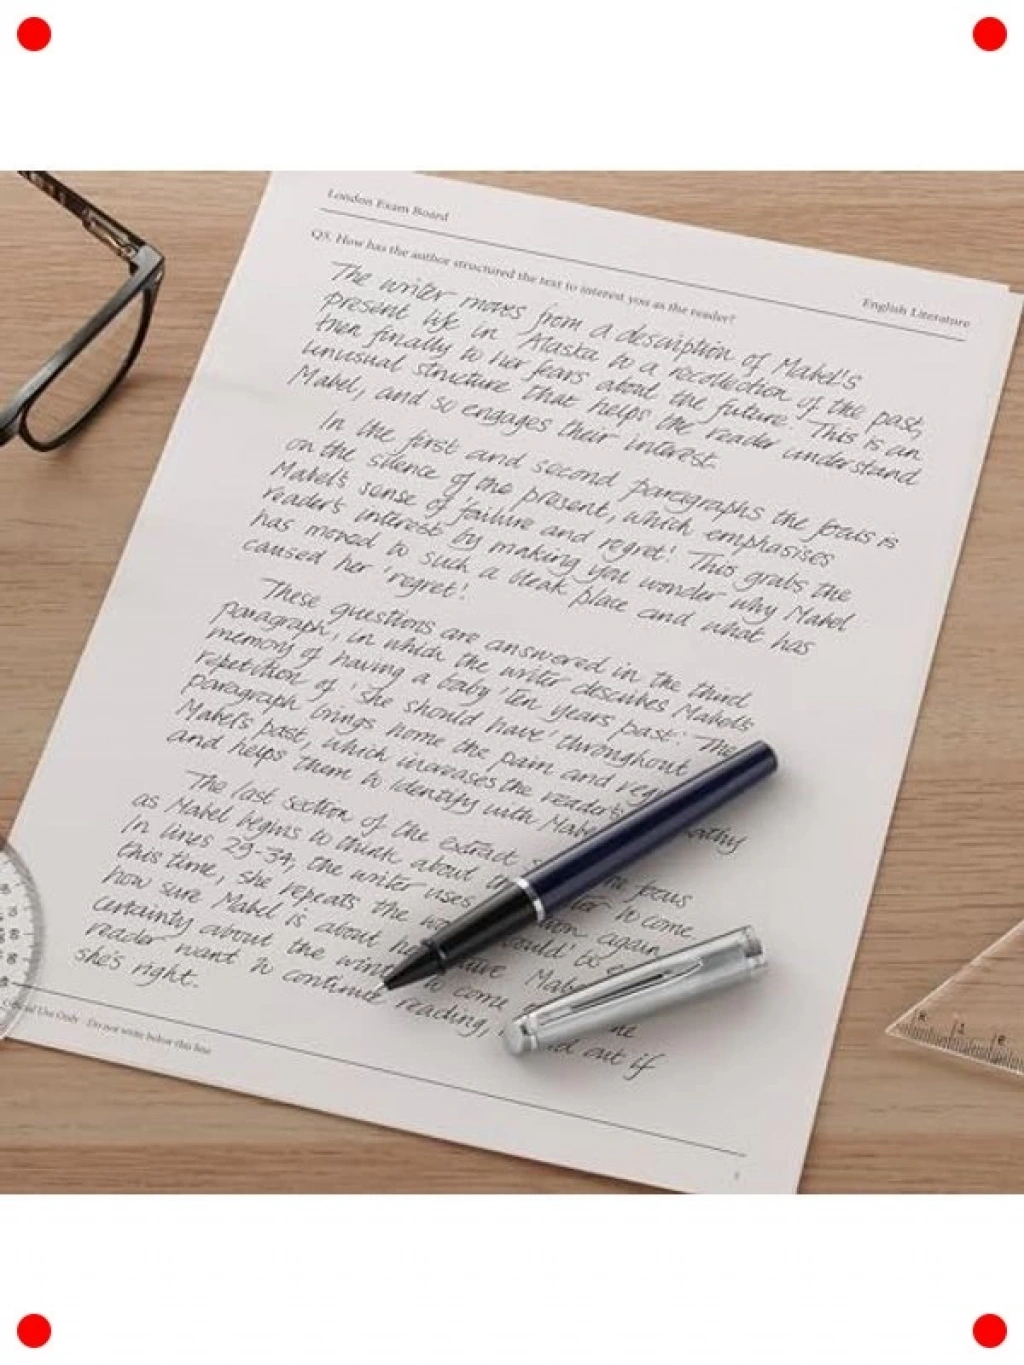 London Exam Board
English Literature
Q5. How has the author structured the text to interest you as the reader?
The writer moves from a description of Mabel's
present life in Alaska to a recollection of the past,
then finally to her fears about the future. This is an
unusual structure that helps the reader understand
Mabel, and so engages their interest.
In the first and second paragraphs the focus is
on the silence of the present, which emphasises
Mabel's sense of 'failure and regret'. This grabs the
reader's interest by making you wonder why Mabel
has moved to such a bleak place and what has
caused her 'regret'.
These questions are answered in the third
paragraph, in which the writer describes Mabel's
memory of having a baby 'ten years past'. The
repetition of 'she should have' throughout
paragraph brings home the pain and
Mabel's past, which increases the reader's
and helps them to identify with
The last section of the extract focus
as Mabel begins to think about to come
In lines 29-34, the writer uses again
this time, she repeats the
how sure Mabel is about
certainty about the to come
reader want to continue reading, out if
she's right.
Use Only Do not write below this line